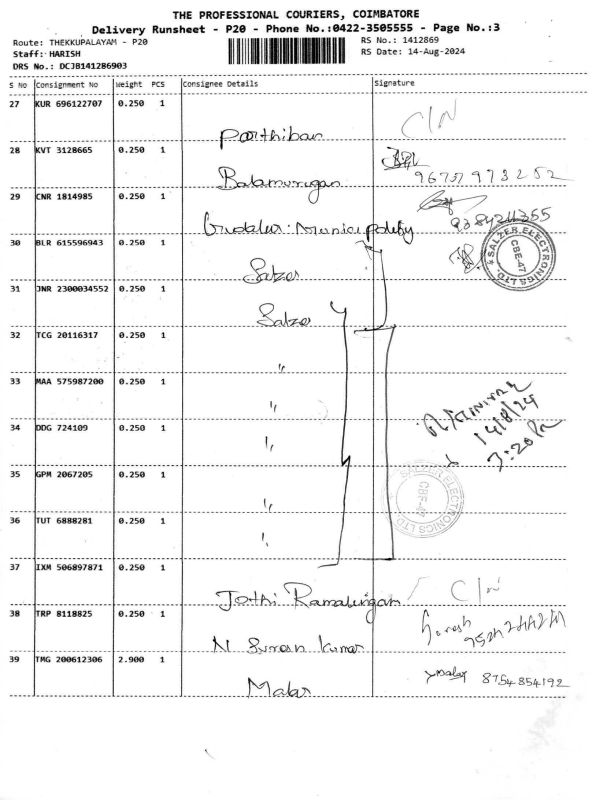 THE PROFESSIONAL COURIERS, COIMBATORE
Delivery Runsheet - P20 - Phone No.:0422-3505555 - Page No.:3
Route: THEKKUPALAYAM - P20
RS No.: 1412869
Staff: HARISH
RS Date: 14-Aug-2024
DRS No.: DCJB141286903
S No Consignment No Weight PCS Consignee Details Signature
27 KUR 696122707 0.250 1
Parthiban C/N
28 KVT 3128665 0.250 1
Balamurugan
29 CNR 1814985 0.250 1
Gudalur. Municipality
30 BLR 615596943 0.250 1
Salzer
SALZER ELECTRONICS LTD.
CBE-47
31 JNR 2300034552 0.250 1
Salzer
32 TCG 20116317 0.250 1
"
33 MAA 575987200 0.250 1
"
14/8/24
3:20
34 DDG 724109 0.250 1
"
35 GPM 2067205 0.250 1
"
SALZER ELECTRONICS LTD
CBE-47
36 TUT 6888281 0.250 1
"
37 IXM 506897871 0.250 1
Jothi Ramalingam C/N
38 TRP 8118825 0.250 1
N Suresh Kumar Suresh
39 TMG 200612306 2.900 1
Malar Malar 8754854192